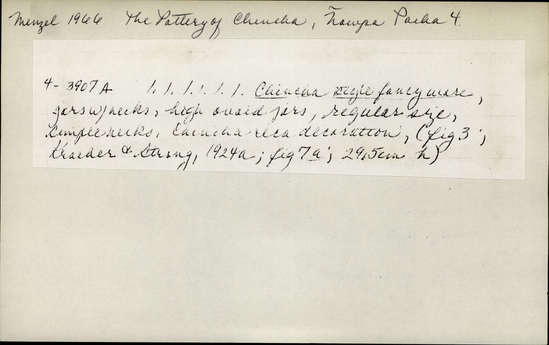 Menzel 1966 The Pottery of Chincha, Ñawpa Pacha 4
4-3907A 1.1.1.1.1.1. Chincha style fancy ware,
jars w/necks, high ovoid jars, regular size,
simple necks, Chincha-Ica decoration, (fig 3;
Kroeber & Strong, 1924a; fig 7a; 29.5cm h)